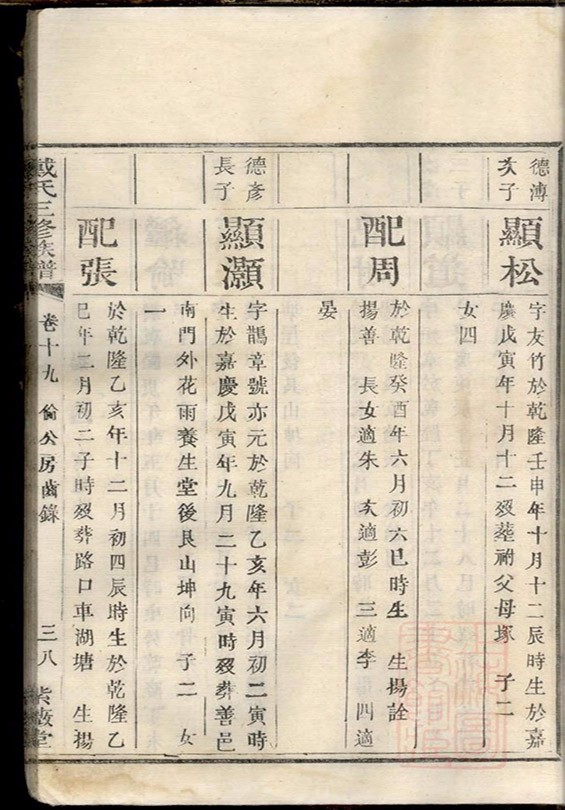 德溥
次子
顯松
字友竹於乾隆壬申年十月十二辰時生於嘉
慶戊寅年十月十二歿塟祔父母塚 子二
女四
配周
於乾隆癸酉年六月初六巳時生 生揚詮
揚善 長女適朱 次適彭 三適李 四適
晏
德彥
長子
顯灝
字鵲章號亦元於乾隆乙亥年六月初二寅時
生於嘉慶戊寅年九月二十九寅時歿葬善邑
南門外花雨養生堂後艮山坤向 子二 女
一
配張
於乾隆乙亥年十二月初四辰時生於乾隆乙
巳年二月初二子時歿葬路口車湖塘 生揚
戴氏三修族譜 卷十九 倫公房齒錄 三八 紫薇堂